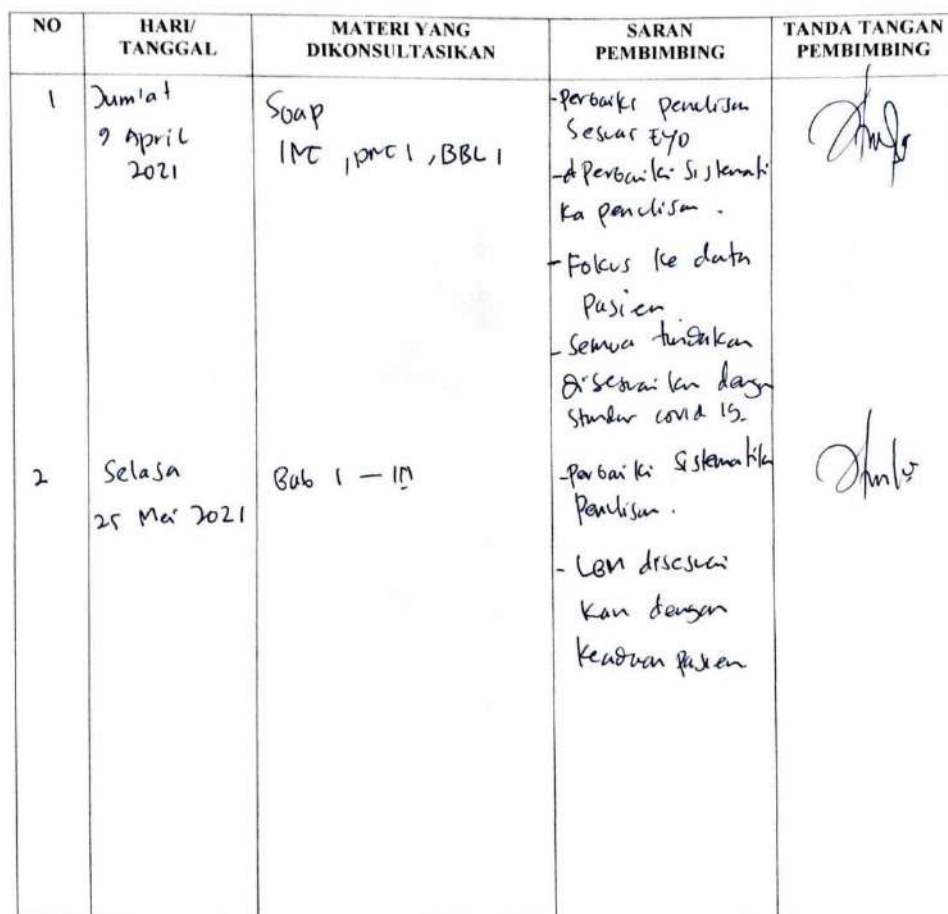 NO
HARI/
TANGGAL
MATERI YANG
DIKONSULTASIKAN
SARAN
PEMBIMBING
TANDA TANGAN
PEMBIMBING
1
Jum'at
9 April
2021
Soap
INC , PNC 1 , BBL 1
-Perbaiki penulisan
Sesuai EYD
- Perbaiki Sistemati
ka penulisan .
- Fokus ke data
Pasien
- Semua tindakan
disesuaikan dengan
Standar covid 19.
2
Selasa
25 Mei 2021
Bab 1 —
-Perbaiki Sistematika
Penulisan .
- LBM disesuai
kan dengan
keadaan pasien